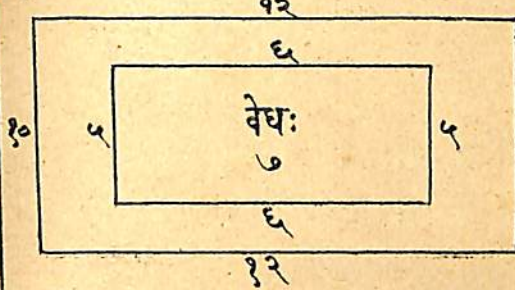 १२
६
१० ५ वेधः ५
७
६
१२